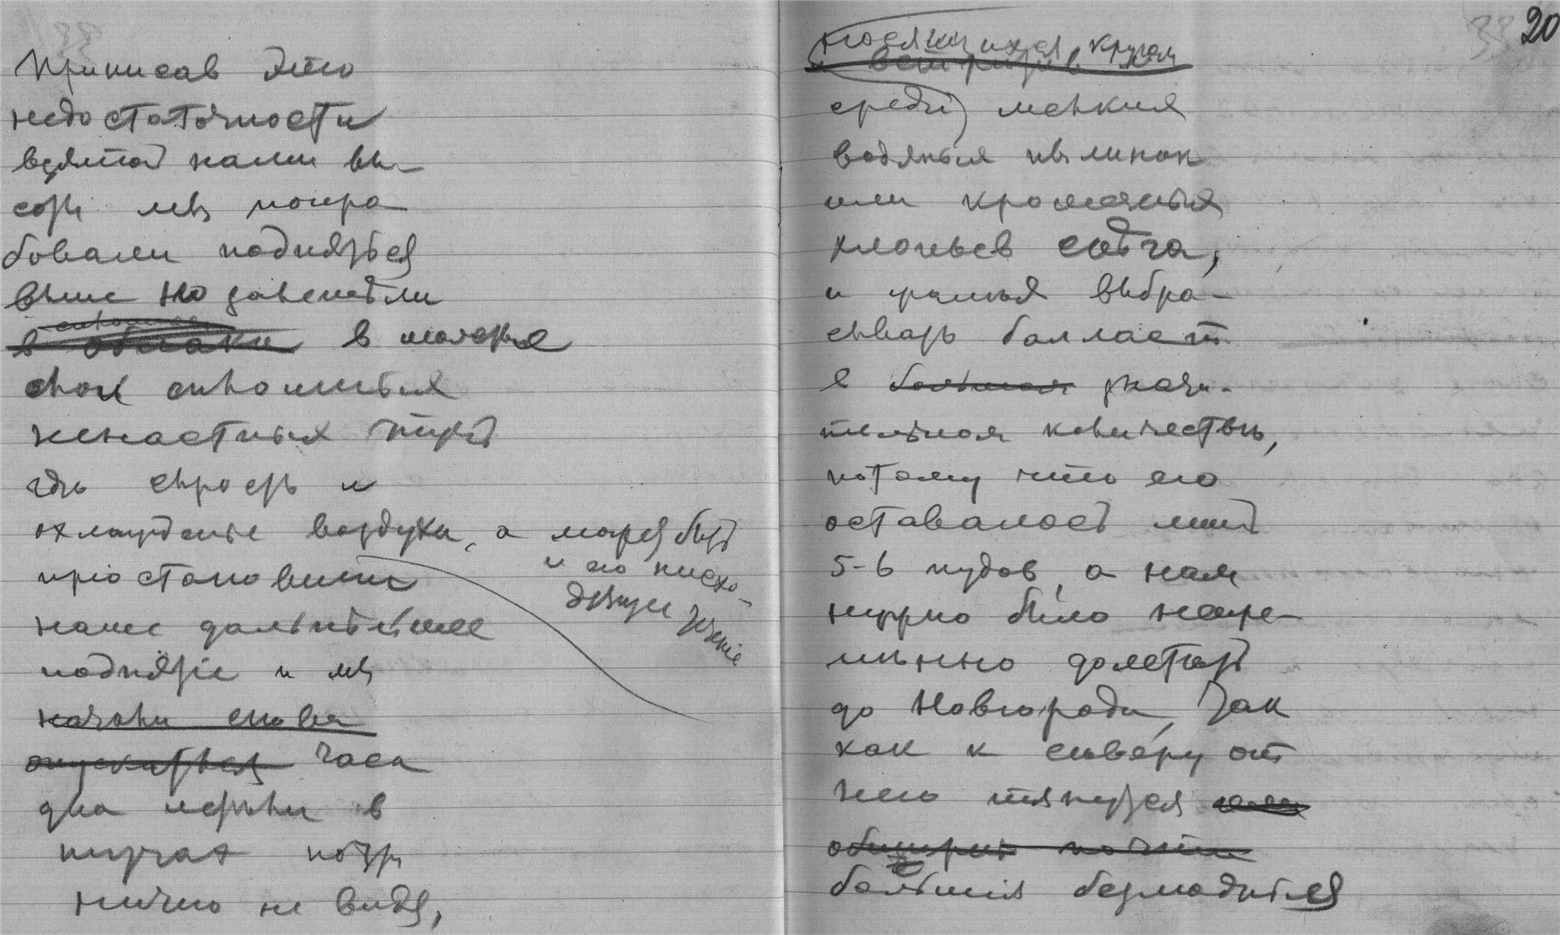 Приписав это
недостаточности
взятой нами вы-
соты мы попро
бовали подняться
выше но залетели
в облака в
слой сплошных
ненастных туч
где сырость и
охлаждение воздуха, а может быть
и его нисхо-
дящее течение
приостановили
наше дальнейшее
поднятие и мы
начали снова
опускаться часа
два летели в
тучах почти
ничего не видя,
20
носящихся кругом
среди) мелких
водяных пылинок
или крошечных
хлопьев снега,
и нельзя выбра-
сывать балласт
в большом значи-
тельном количестве,
потому что его
оставалось лишь
5-6 пудов, а нам
нужно было непре-
менно долететь
до Новгорода, так
как к северу от
него тянутся
обширные почти
большие безлюдные